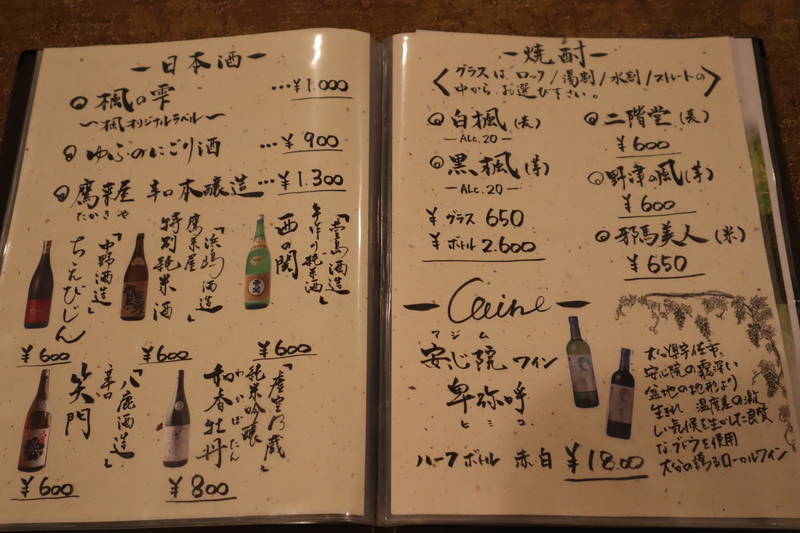 日本酒
楓の雫 … ¥1.000
〜楓オリジナルラベル〜
ゆふのにごり酒 ¥900
鷹来屋 辛口本醸造 … ¥1.300
たかきや
「中野酒造」
ちえびじん
¥600
「浜嶋酒造」
鷹来屋
特別純米酒
¥600
「萱島酒造」
手作り純米酒
西の関
¥600
「八鹿酒造」
辛口
笑門
¥600
「虚空乃蔵」
純米吟醸
和香牡丹
わかぼたん
¥800
焼酎
〈グラスは、ロック/湯割/水割/ストレートの
中から、お選び下さい。〉
白楓(麦)
ALC.20
黒楓(芋)
ALC.20
¥グラス 650
¥ボトル 2.600
二階堂(麦)
¥600
野津の風(芋)
¥600
耶馬美人(米)
¥650
Wine
アジム
安心院ワイン
卑弥呼
ヒミコ
ハーフボトル 赤白 ¥18.00
大分県宇佐市、
安心院の霧深い
盆地の地形より
生まれ 温度差の激
しい気候を生かした良質
なブドウを使用
大分の誇るローカルワイン